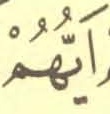 اَيُّهُمْ